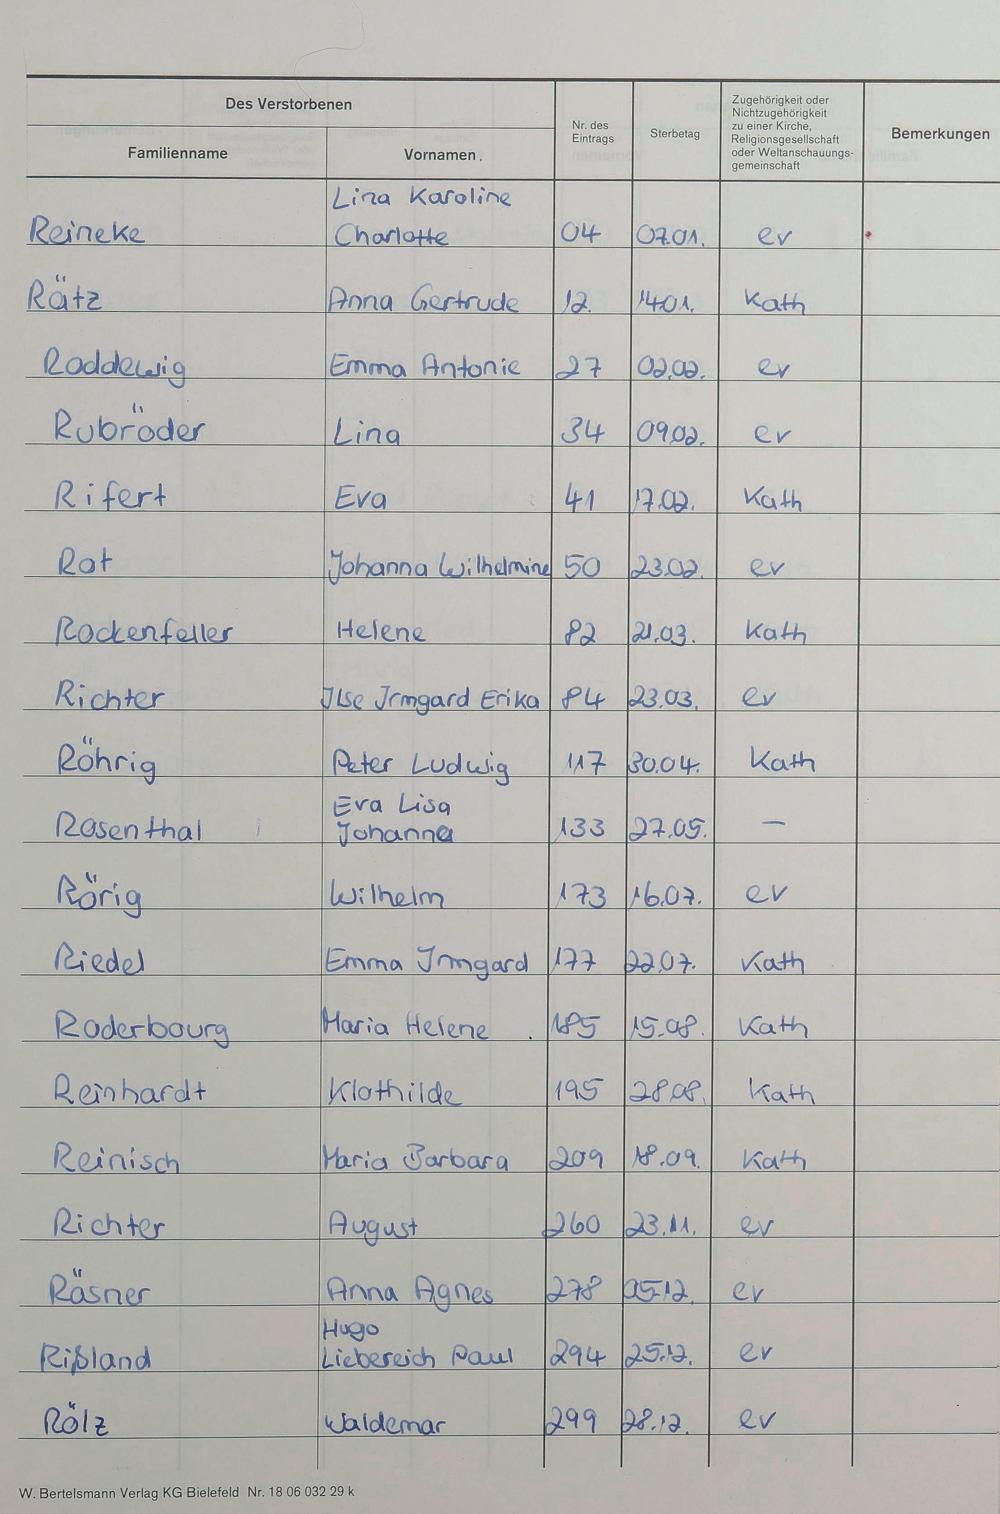 Des Verstorbenen
Familienname
Vornamen.
Nr. des
Eintrags
Sterbetag
Zugehörigkeit oder
Nichtzugehörigkeit
zu einer Kirche,
Religionsgesellschaft
oder Weltanschauungs-
gemeinschaft
Bemerkungen
Lina Karoline
Reineke Charlotte 04 07.01. ev
Rätz Anna Gertrude 12. 14.01. Kath
Roddewig Emma Antonie 27 02.02. ev
Rubröder Lina 34 09.02. ev
Rifert Eva 41 17.02. Kath
Rat Johanna Wilhelmine 50 23.02. ev
Rockenfeller Helene 82 21.03. Kath
Richter Ilse Irmgard Erika 84 23.03. ev
Röhrig Peter Ludwig 117 30.04. Kath
Eva Lisa
Rosenthal Johanna 133 27.05. —
Rörig Wilhelm 173 16.07. ev
Riedel Emma Irmgard 177 22.07. Kath
Roderbourg Maria Helene 185 15.08. Kath
Reinhardt Klothilde 195 28.08. Kath
Reinisch Maria Barbara 209 18.09. Kath
Richter August 260 23.11. ev
Räsner Anna Agnes 278 05.12. ev
Hugo
Rißland Liebereich Paul 294 25.12. ev
Rölz Waldemar 299 28.12. ev
W. Bertelsmann Verlag KG Bielefeld Nr. 18 06 032 29 k